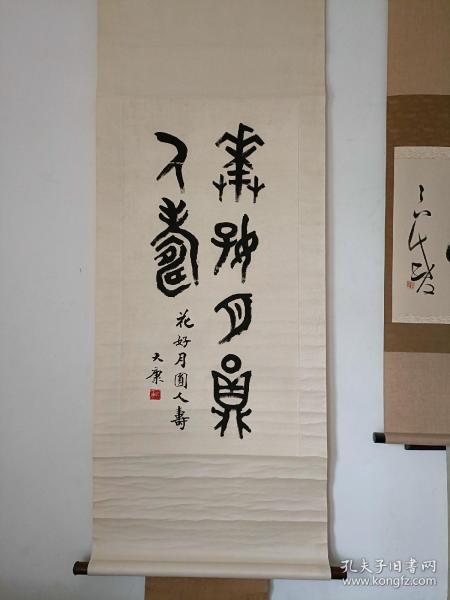 華好月員
人壽
花好月圓人壽
大康
孔夫子旧书网
www.kongfz.com